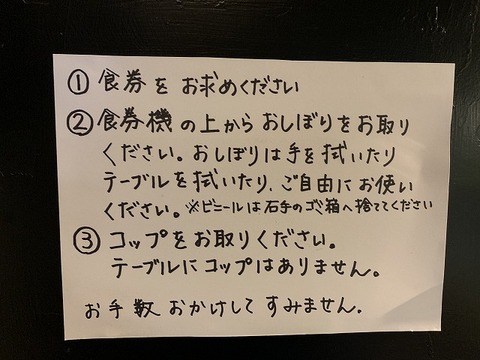 ① 食券をお求めください
② 食券機の上からおしぼりをお取り
ください。おしぼりは手を拭いたり
テーブルを拭いたり、ご自由にお使い
ください。※ビニールは右手のゴミ箱へ捨ててください
③ コップをお取りください。
テーブルにコップはありません。
お手数おかけしてすみません。